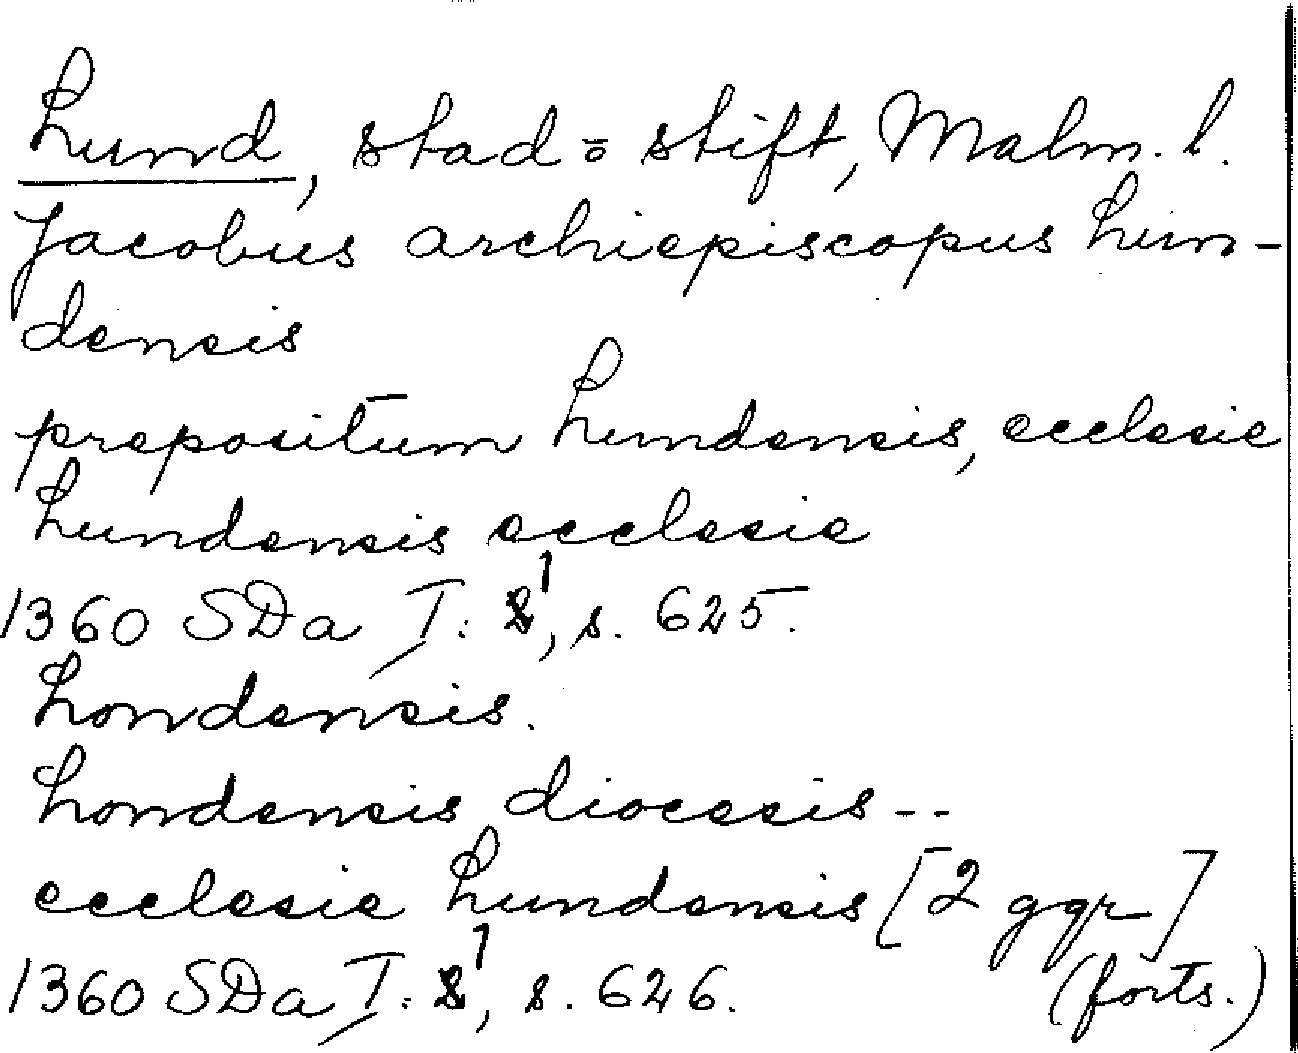 Lund, stad = stift, Malm. l.
Jacobus archiepiscopus Lun-
densis
prepositum Lundensis, ecclesie
Lundensis ecclesie
1360 SDa I: 1, s. 625.
Londensis.
Londensis diocesis --
ecclesie Lundensis [2 ggr]
1360 SDa I: 1, s. 626. (forts.)